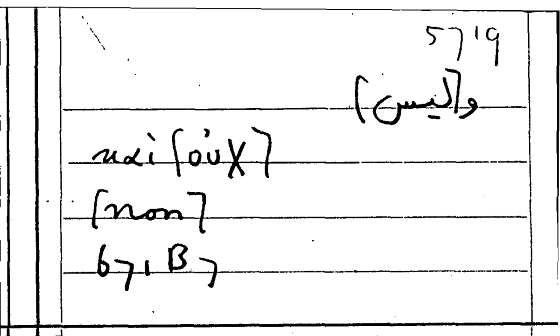 5719
و[ليس]
καὶ [οὐχ]
[non]
671 B 7